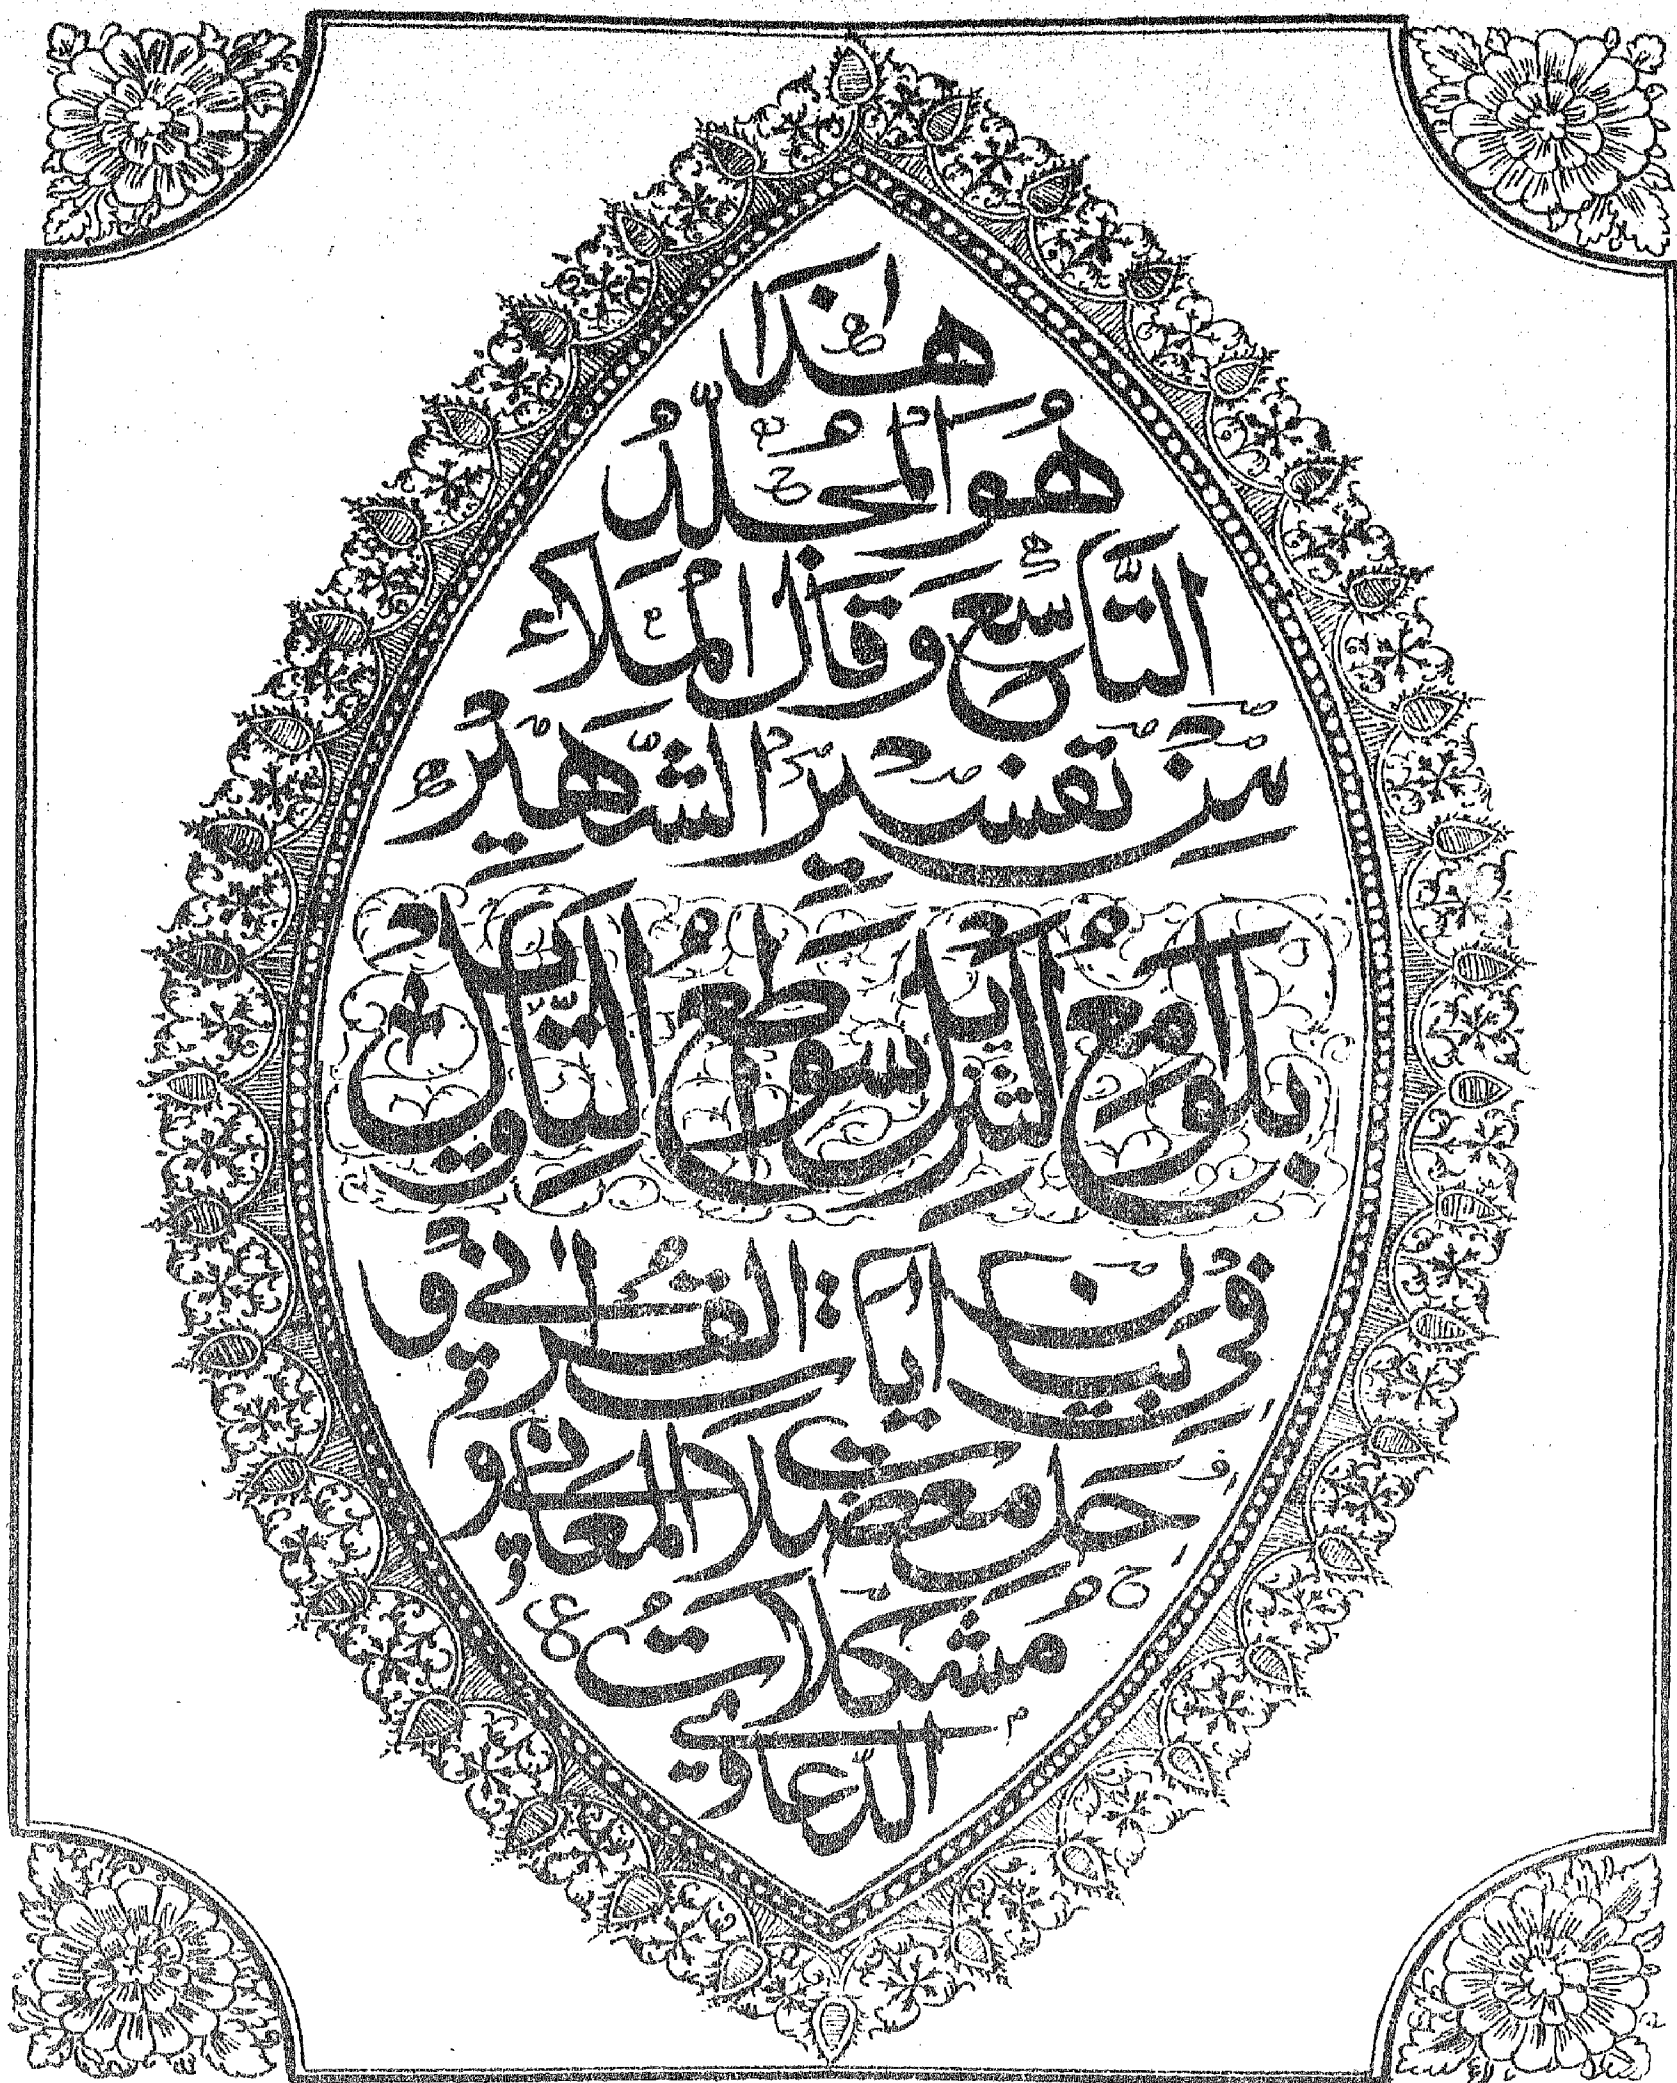 هٰذَا
هُوَ الْمُجَلَّدُ
التَّاسِعُ وَقَالَ الْمُلَاءِ
مِنْ تَفْسِيْرِ الشَّهِيْرِ
بِلَوَامِعِ التَّنْزِيْلِ سَوَاطِعِ التَّأْوِيْلِ
فِيْ بَيَانِ اٰيَاتِ الْقُرْاٰنِيْ وَ
حَلِّ مُعْضَلَاتِ الْمَعَانِيْ وَ
مُشْكَلَاتُ
الدَّعَاوِيْ